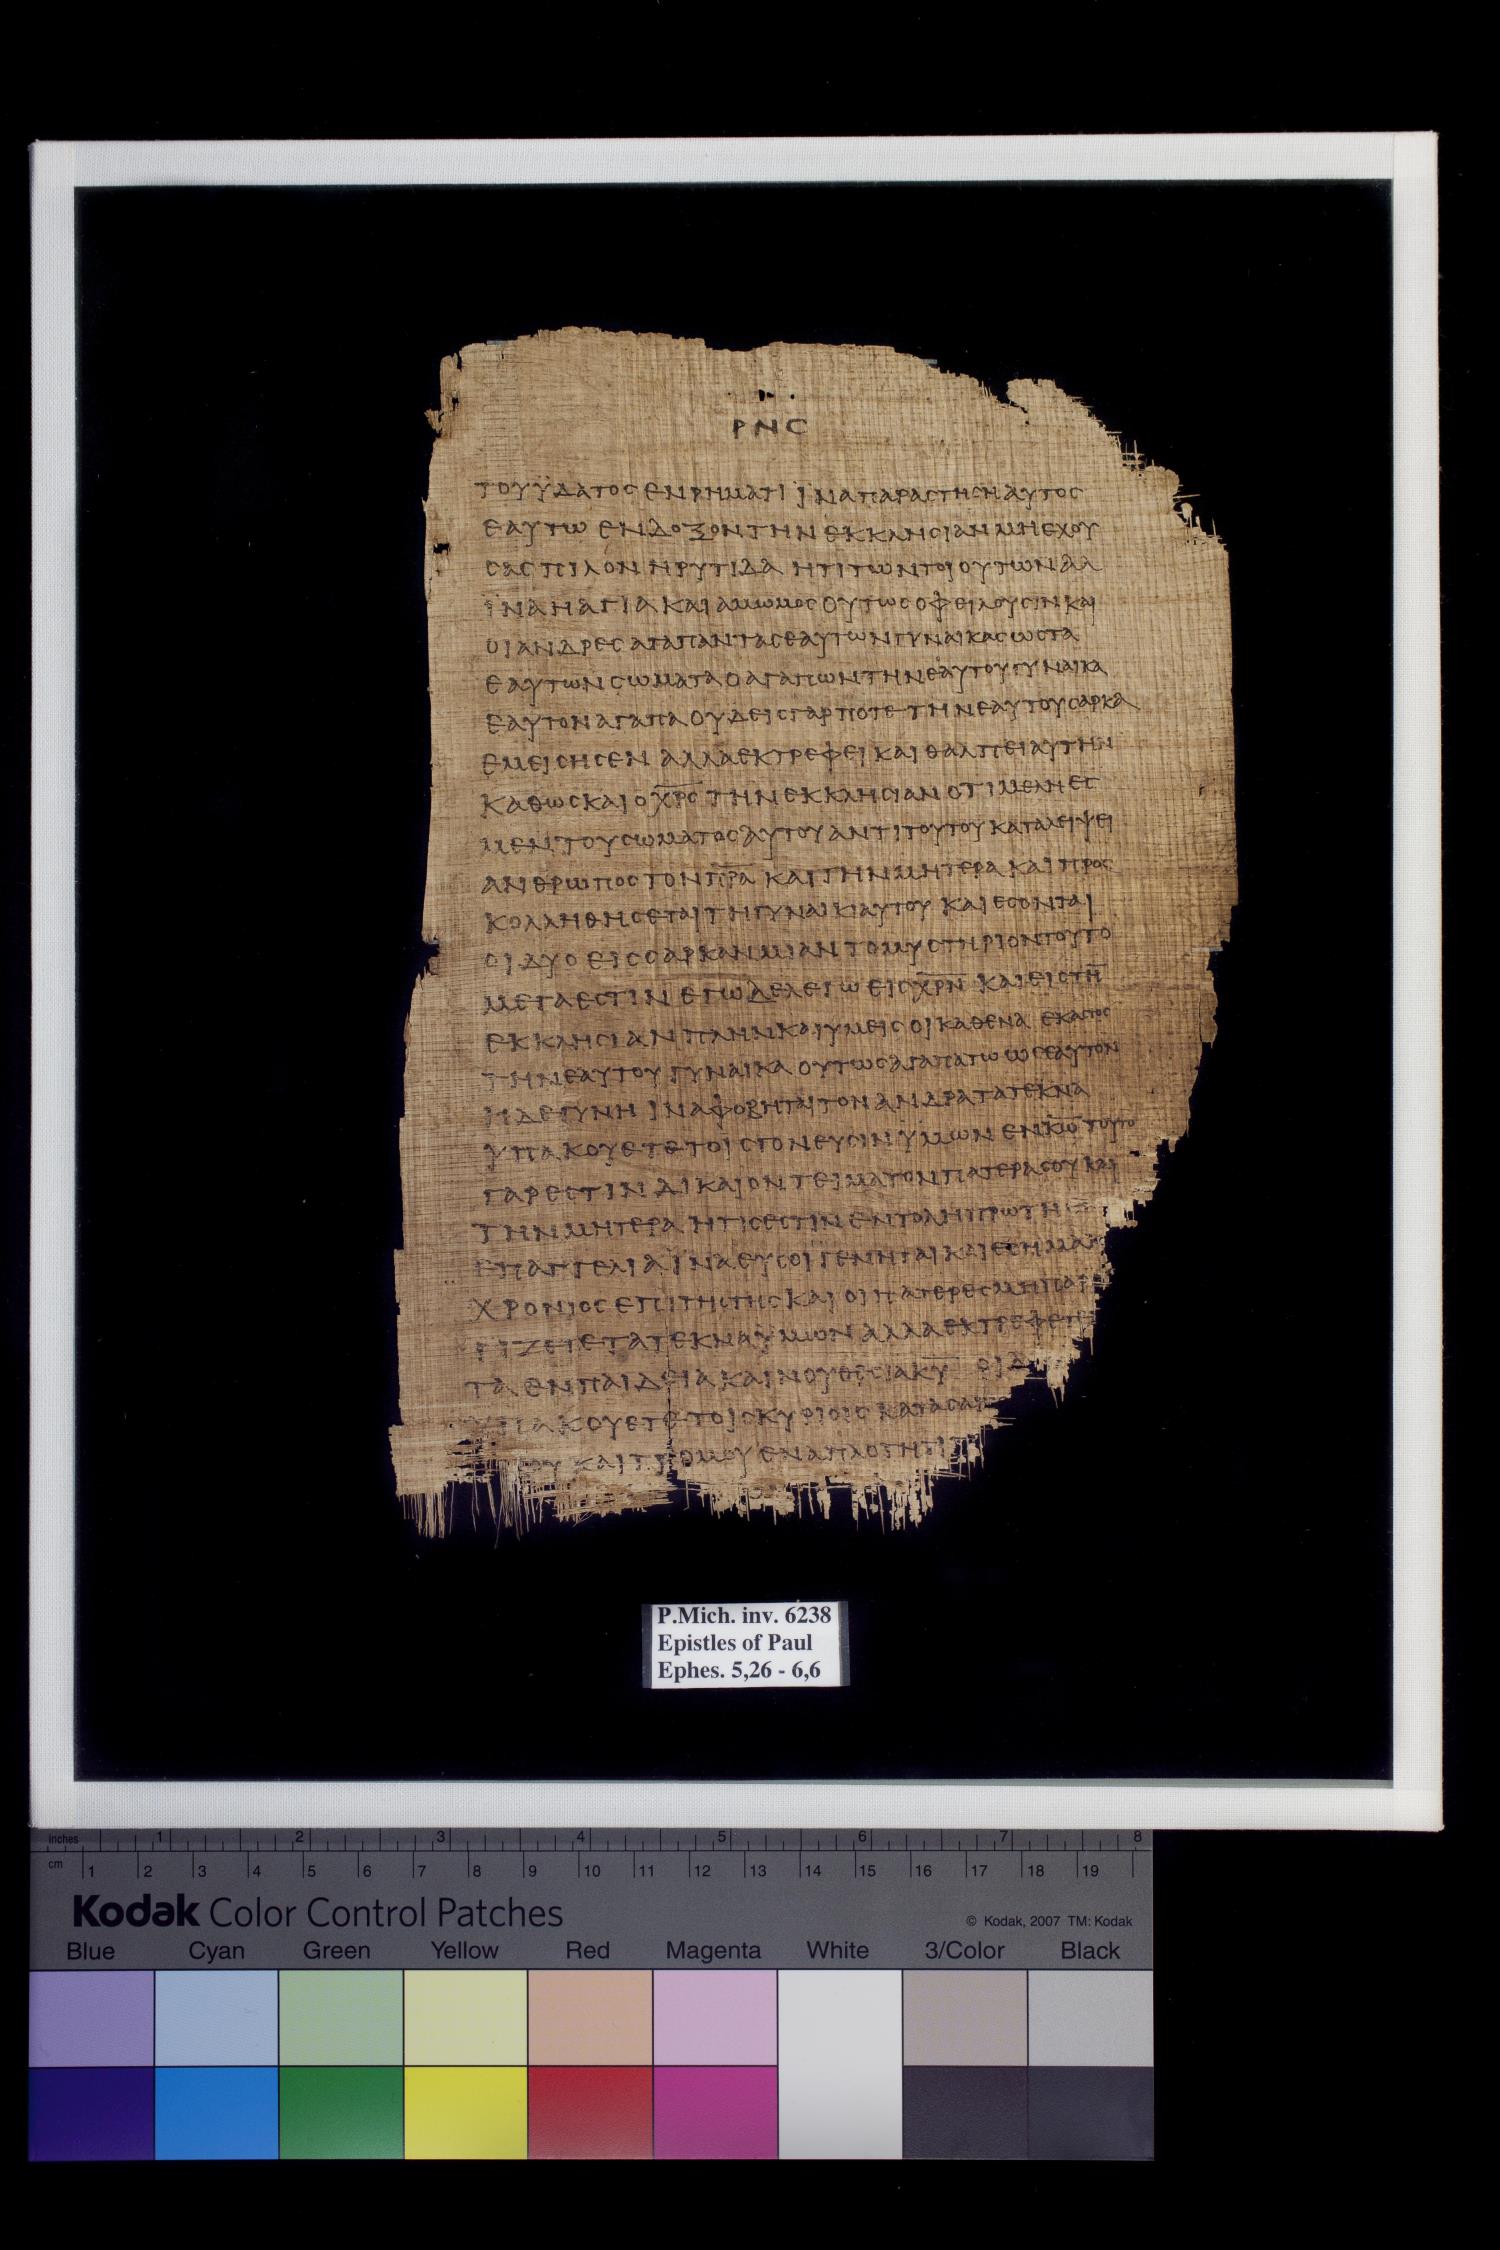 ΡΝϹ
ΤΟΥ ΫΔΑΤΟϹ ΕΝ ΡΗΜΑΤΙ ΪΝΑ ΠΑΡΑϹΤΗϹΗ ΑΥΤΟϹ
ΕΑΥΤΩ ΕΝΔΟΞΟΝ ΤΗΝ ΕΚΚΛΗϹΙΑΝ ΜΗ ΕΧΟΥ
ϹΑϹΠΙΛΟΝ Η ΡΥΤΙΔΑ Η ΤΙ ΤΩΝ ΤΟΙΟΥΤΩΝ ΑΛ
ΪΝΑ Η ΑΓΙΑ ΚΑΙ ΑΜΩΜΟϹ ΟΥΤΩϹ ΟΦΕΙΛΟΥϹΙΝ ΚΑΙ
ΟΙ ΑΝΔΡΕϹ ΑΓΑΠΑΝ ΤΑϹ ΕΑΥΤΩΝ ΓΥΝΑΙΚΑϹ ΩϹ ΤΑ
ΕΑΥΤΩΝ ϹΩΜΑΤΑ Ο ΑΓΑΠΩΝ ΤΗΝ ΕΑΥΤΟΥ ΓΥΝΑΙΚΑ
ΕΑΥΤΟΝ ΑΓΑΠΑ ΟΥΔΕΙϹ ΓΑΡ ΠΟΤΕ ΤΗΝ ΕΑΥΤΟΥ ϹΑΡΚΑ
ΕΜΕΙϹΗϹΕΝ ΑΛΛΑ ΕΚΤΡΕΦΕΙ ΚΑΙ ΘΑΛΠΕΙ ΑΥΤΗΝ
ΚΑΘΩϹ ΚΑΙ Ο Χ̅Ρ̅Ϲ̅ ΤΗΝ ΕΚΚΛΗϹΙΑΝ ΟΤΙ ΜΕΛΗ ΕϹ
ΜΕΝ ΤΟΥ ϹΩΜΑΤΟϹ ΑΥΤΟΥ ΑΝΤΙ ΤΟΥΤΟΥ ΚΑΤΑΛΕΙΨΕΙ
ΑΝΘΡΩΠΟϹ ΤΟΝ Π̅Ρ̅Α̅ ΚΑΙ ΤΗΝ ΜΗΤΕΡΑ ΚΑΙ ΠΡΟϹ
ΚΟΛΛΗΘΗϹΕΤΑΙ ΤΗ ΓΥΝΑΙΚΙ ΑΥΤΟΥ ΚΑΙ ΕϹΟΝΤΑΙ
ΟΙ ΔΥΟ ΕΙϹ ϹΑΡΚΑΝ ΜΙΑΝ ΤΟ ΜΥϹΤΗΡΙΟΝ ΤΟΥΤΟ
ΜΕΓΑ ΕϹΤΙΝ ΕΓΩ ΔΕ ΛΕΓΩ ΕΙϹ Χ̅Ρ̅Ν̅ ΚΑΙ ΕΙϹ ΤΗ̅
ΕΚΚΛΗϹΙΑΝ ΠΛΗΝ ΚΑΙ ΥΜΕΙϹ ΟΙ ΚΑΘ ΕΝΑ ΕΚΑϹΤΟϹ
ΤΗΝ ΕΑΥΤΟΥ ΓΥΝΑΙΚΑ ΟΥΤΩϹ ΑΓΑΠΑΤΩ ΩϹ ΕΑΥΤΟΝ
Η ΔΕ ΓΥΝΗ ΙΝΑ ΦΟΒΗΤΑΙ ΤΟΝ ΑΝΔΡΑ ΤΑ ΤΕΚΝΑ
ΥΠΑΚΟΥΕΤΕ ΤΟΙϹ ΓΟΝΕΥϹΙΝ ΥΜΩΝ ΕΝ Κ̅Ω̅ ΤΟΥΤΟ
ΓΑΡ ΕϹΤΙΝ ΔΙΚΑΙΟΝ ΤΕΙΜΑ ΤΟΝ ΠΑΤΕΡΑ ϹΟΥ ΚΑΙ
ΤΗΝ ΜΗΤΕΡΑ ΗΤΙϹ ΕϹΤΙΝ ΕΝΤΟΛΗ ΠΡΩΤΗ
ΕΠΑΓΓΕΛΙΑ ΪΝΑ ΕΥ ϹΟΙ ΓΕΝΗΤΑΙ ΚΑΙ ΕϹΗ ΜΑΚ
ΧΡΟΝΙΟϹ ΕΠΙ ΤΗϹ ΓΗϹ ΚΑΙ ΟΙ ΠΑΤΕΡΕϹ ΜΗ ΠΑΡ
ΓΙΖΕΤΕ ΤΑ ΤΕΚΝΑ ΫΜΩΝ ΑΛΛΑ ΕΚΤΡΕΦΕΤ
ΤΑ ΕΝ ΠΑΙΔΕΙΑ ΚΑΙ ΝΟΥΘΕϹΙΑ Κ̅Υ̅ ΟΙ Δ
ΥΠΑΚΟΥΕΤΕ ΤΟΙϹ ΚΥΡΙΟΙϹ ΚΑΤΑ ϹΑΡ
ΟΥ ΚΑΙ ΤΡΟΜΟΥ ΕΝ ΑΠΛΟΤΗΤΙ Τ
P.Mich. inv. 6238
Epistles of Paul
Ephes. 5,26 - 6,6
inches 1 2 3 4 5 6 7 8
cm 1 2 3 4 5 6 7 8 9 10 11 12 13 14 15 16 17 18 19
Kodak Color Control Patches
© Kodak, 2007 TM: Kodak
Blue Cyan Green Yellow Red Magenta White 3/Color Black